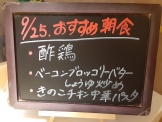 9/25.おすすめ朝食
・酢鶏
・ベーコンブロッコリーバター
しょうゆ炒め
・きのこチキン中華パスタ